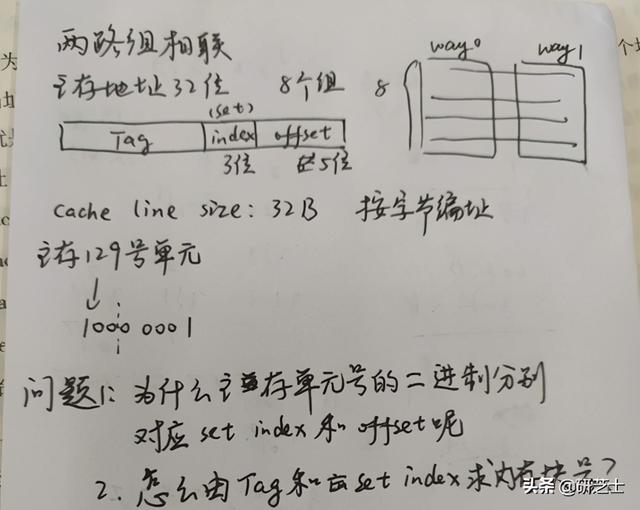 两路组相联
way0 way1
主存地址32位 8个组 8
(set)
Tag index offset
3位 5位
cache line size: 32B 按字节编址
主存129号单元
1000 0001
问题1: 为什么主存单元号的二进制分别
对应 set index 和 offset呢
2. 怎么由Tag和 set index求内存块号?
头条 @研芝士